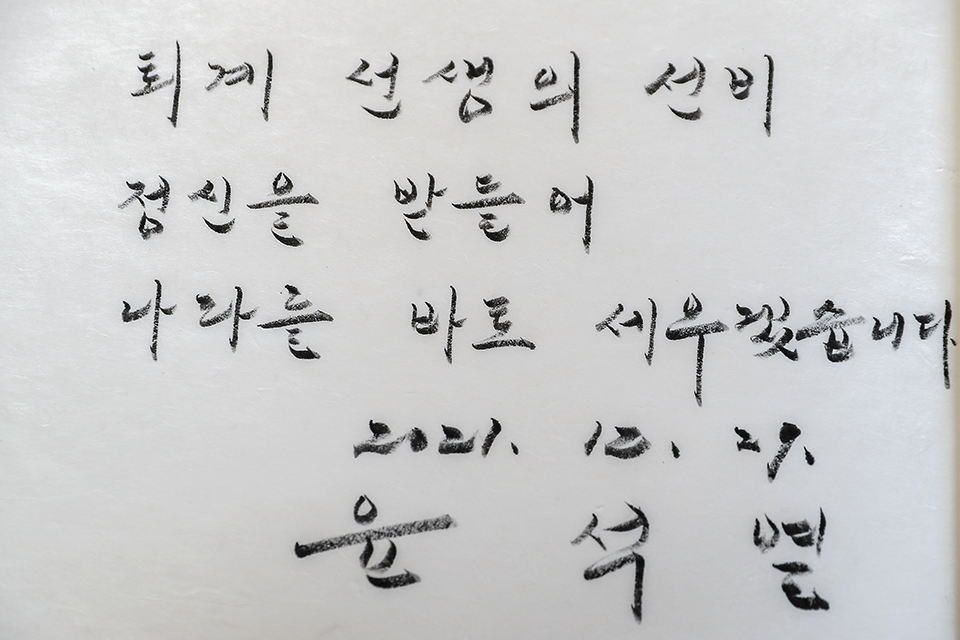 퇴계 선생의 선비
정신을 받들어
나라를 바로 세우겠습니다
2021. 12. 29.
윤 석 열